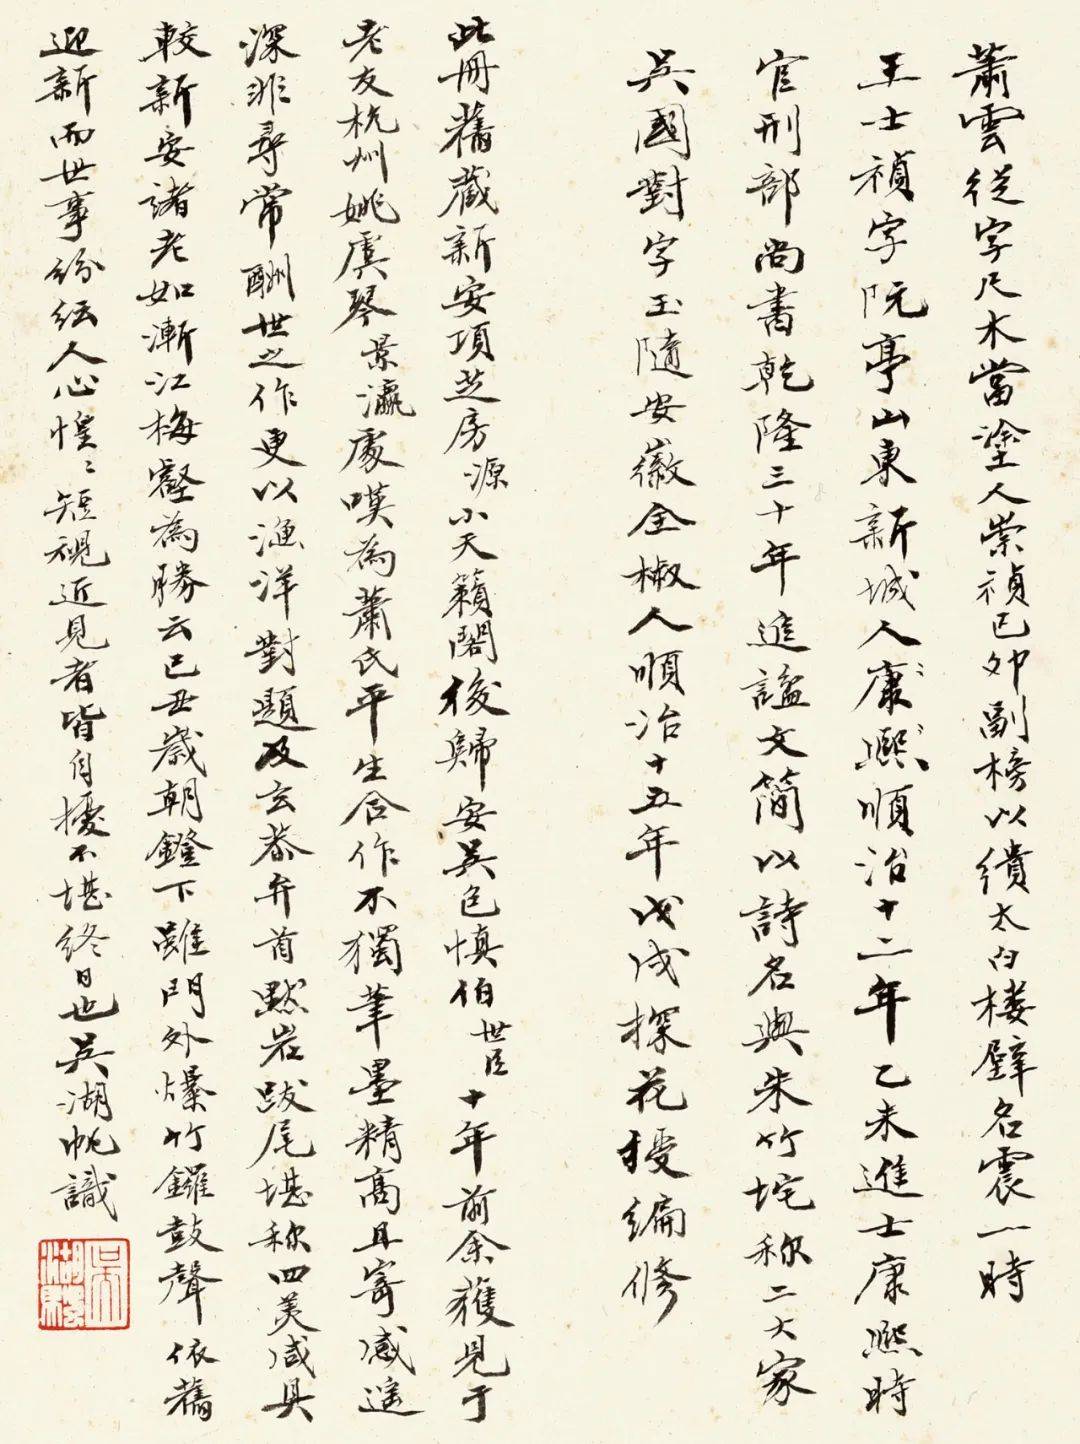 蕭雲從字尺木當塗人崇禎己卯副榜以繢太白樓壁名震一時
王士禎字阮亭山東新城人康熙順治十二年乙未進士康熙時
官刑部尚書乾隆三十年追諡文簡以詩名與朱竹垞称二大家
吳國對字玉隨安徽全椒人順治十五年戊戌探花授編修
此冊舊藏新安項芝房源小天籟閣後歸安吳包慎伯世臣十年前余獲見于
老友杭州姚虞琴景瀛處嘆為蕭氏平生合作不獨筆墨精高且寄感遙
深非尋常酬世之作更以漁洋對題及玄恭弁首默岩跋尾堪称四美咸具
較新安諸老如漸江梅壑為勝云己丑歲朝鐙下雖門外爆竹鑼鼓聲依舊
迎新而世事紛紜人心惶〻短視近見者皆自擾不堪終日也吳湖帆識
吳湖帆